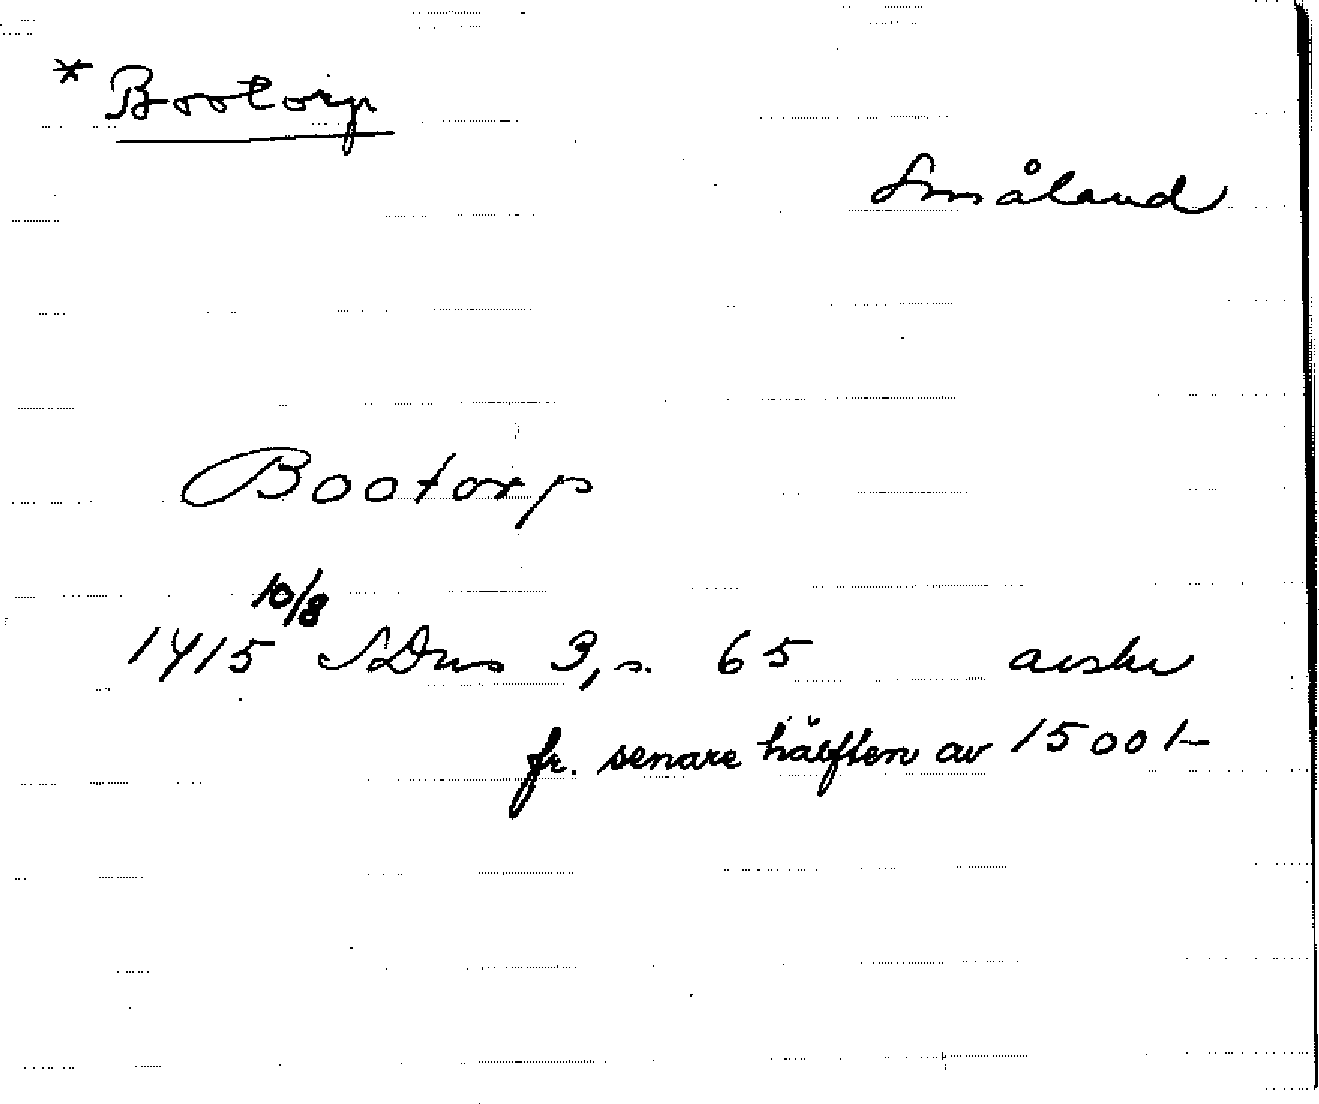 * Bootorp
Småland
Bootorp
1415 10/8 SDns 3, s. 65 avskr
fr. senare hälften av 1500 t-